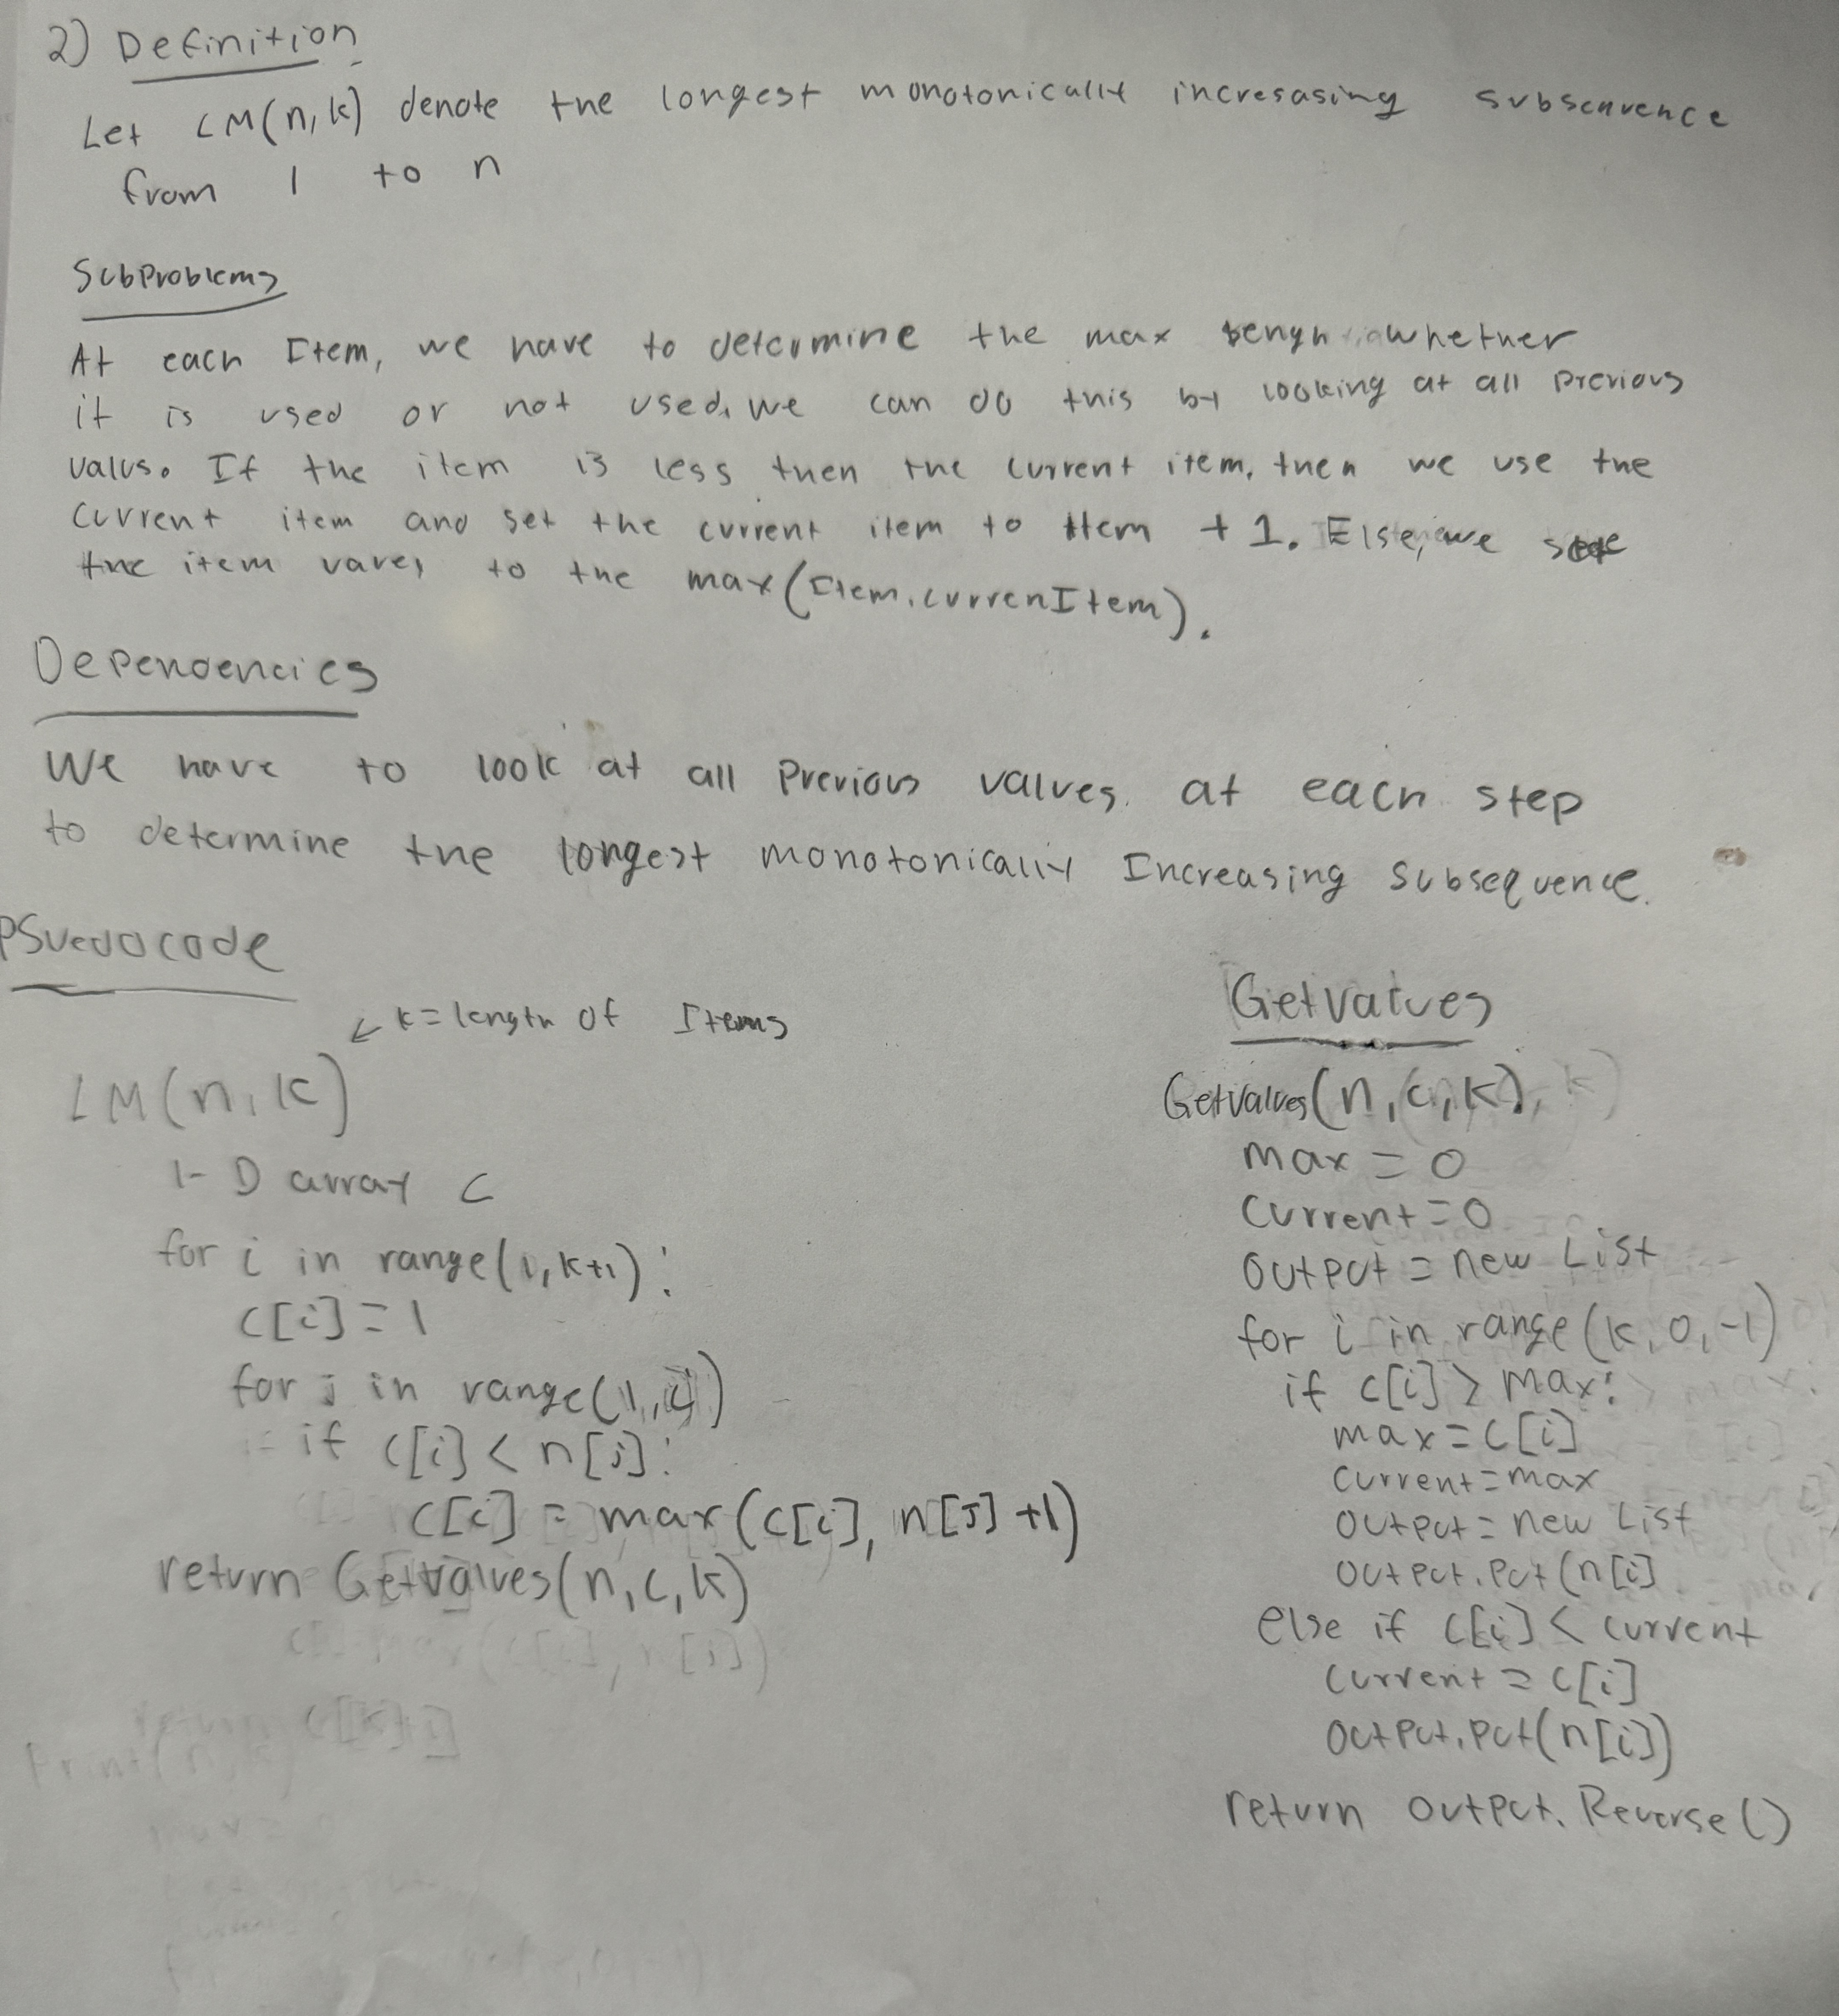 2) Definition
Let LM(n,k) denote the longest monotonically incresasing subsequence
from 1 to n
SubProblems
At each Item, we have to determine the max whether
it is used or not used. we can do this by looking at all previous
values. If the item is less then the current item, then we use the
current item and set the current item to Item +1. Else, we
the item to the max(Item, currenItem).
Dependencies
We have to look at all Previous values. at each step
to determine the longest monotonically Increasing Subsequence.
PSuedocode
k=length of Items
LM(n,k)
1-D array c
for i in range(1,k+1):
c[i]=1
for j in range(1,i)
if c[i] < n[j]:
c[i] = max(c[i], n[J]+1)
return Getvalues(n,c,k)
Getvalues
Getvalues(n,c,k)
max = 0
current=0
output = new List
for i in range(k,0,-1)
if c[i] > max:
max=c[i]
current=max
output=new List
output.put(n[i]
else if c[i] < current
current = c[i]
output.put(n[i])
return output.Reverse()